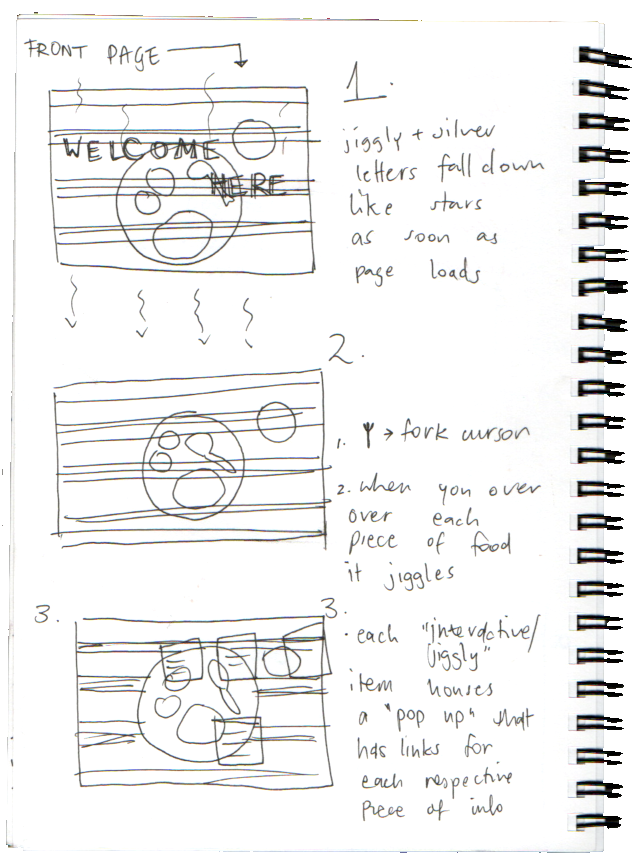 FRONT PAGE
WELCOME
HERE
1.
jiggly + silver
letters fall down
like stars
as soon as
page loads
2.
1. → fork cursor
2. when you over
over each
piece of food
it jiggles
3.
3.
· each "interactive/
jiggly"
item houses
a "pop up" that
has links for
each respective
piece of info